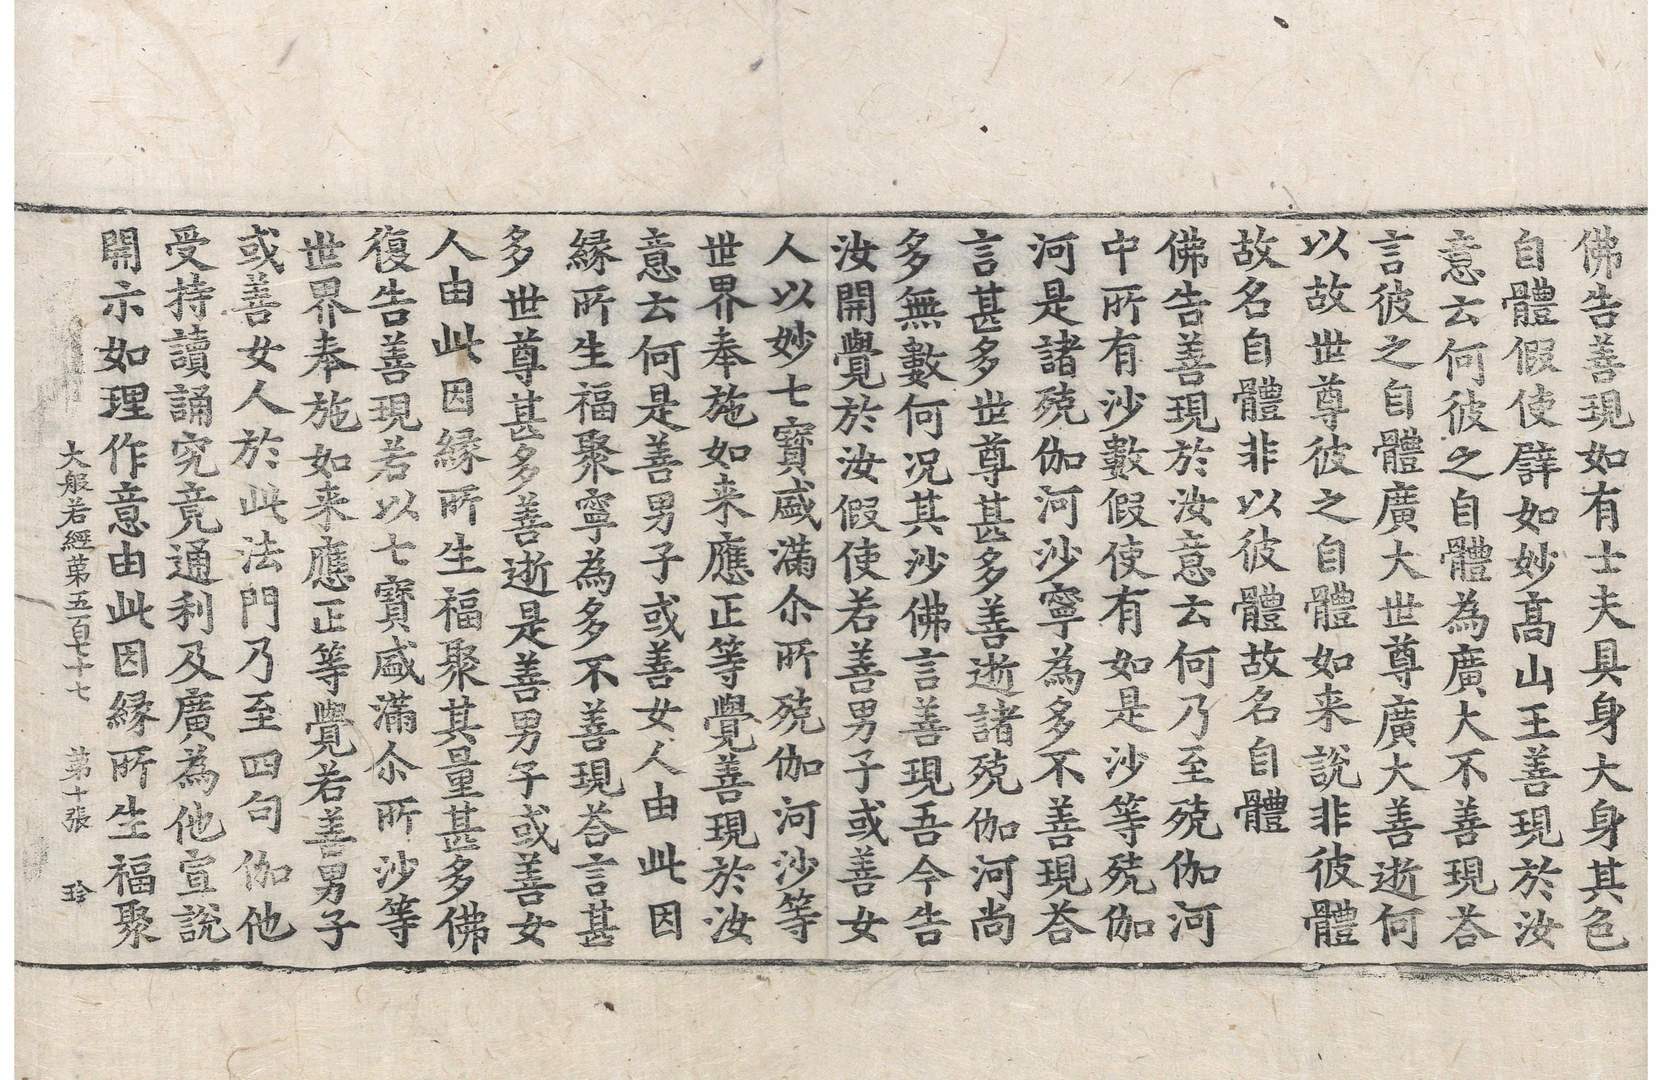 佛告善現如有士夫具身大身其色
自體假使譬如妙高山王善現於汝
意云何彼之自體為廣大不善現荅
言彼之自體廣大世尊廣大善逝何
以故世尊彼之自體如来說非彼體
故名自體非以彼體故名自體
佛告善現於汝意云何乃至殑伽河
中所有沙數假使有如是沙等殑伽
河是諸殑伽河沙寧為多不善現荅
言甚多世尊甚多善逝諸殑伽河尚
多無數何况其沙佛言善現吾今告
汝開覺於汝假使若善男子或善女
人以妙七寶盛滿尒所殑伽河沙等
世界奉施如来應正等覺善現於汝
意云何是善男子或善女人由此因
緣所生福聚寧為多不善現荅言甚
多世尊甚多善逝是善男子或善女
人由此因緣所生福聚其量甚多佛
復告善現若以七寶盛滿尒所沙等
世界奉施如来應正等覺若善男子
或善女人於此法門乃至四句伽他
受持讀誦究竟通利及廣為他宣說
開示如理作意由此因緣所生福聚
大般若經第五百七十七 第十張 珍